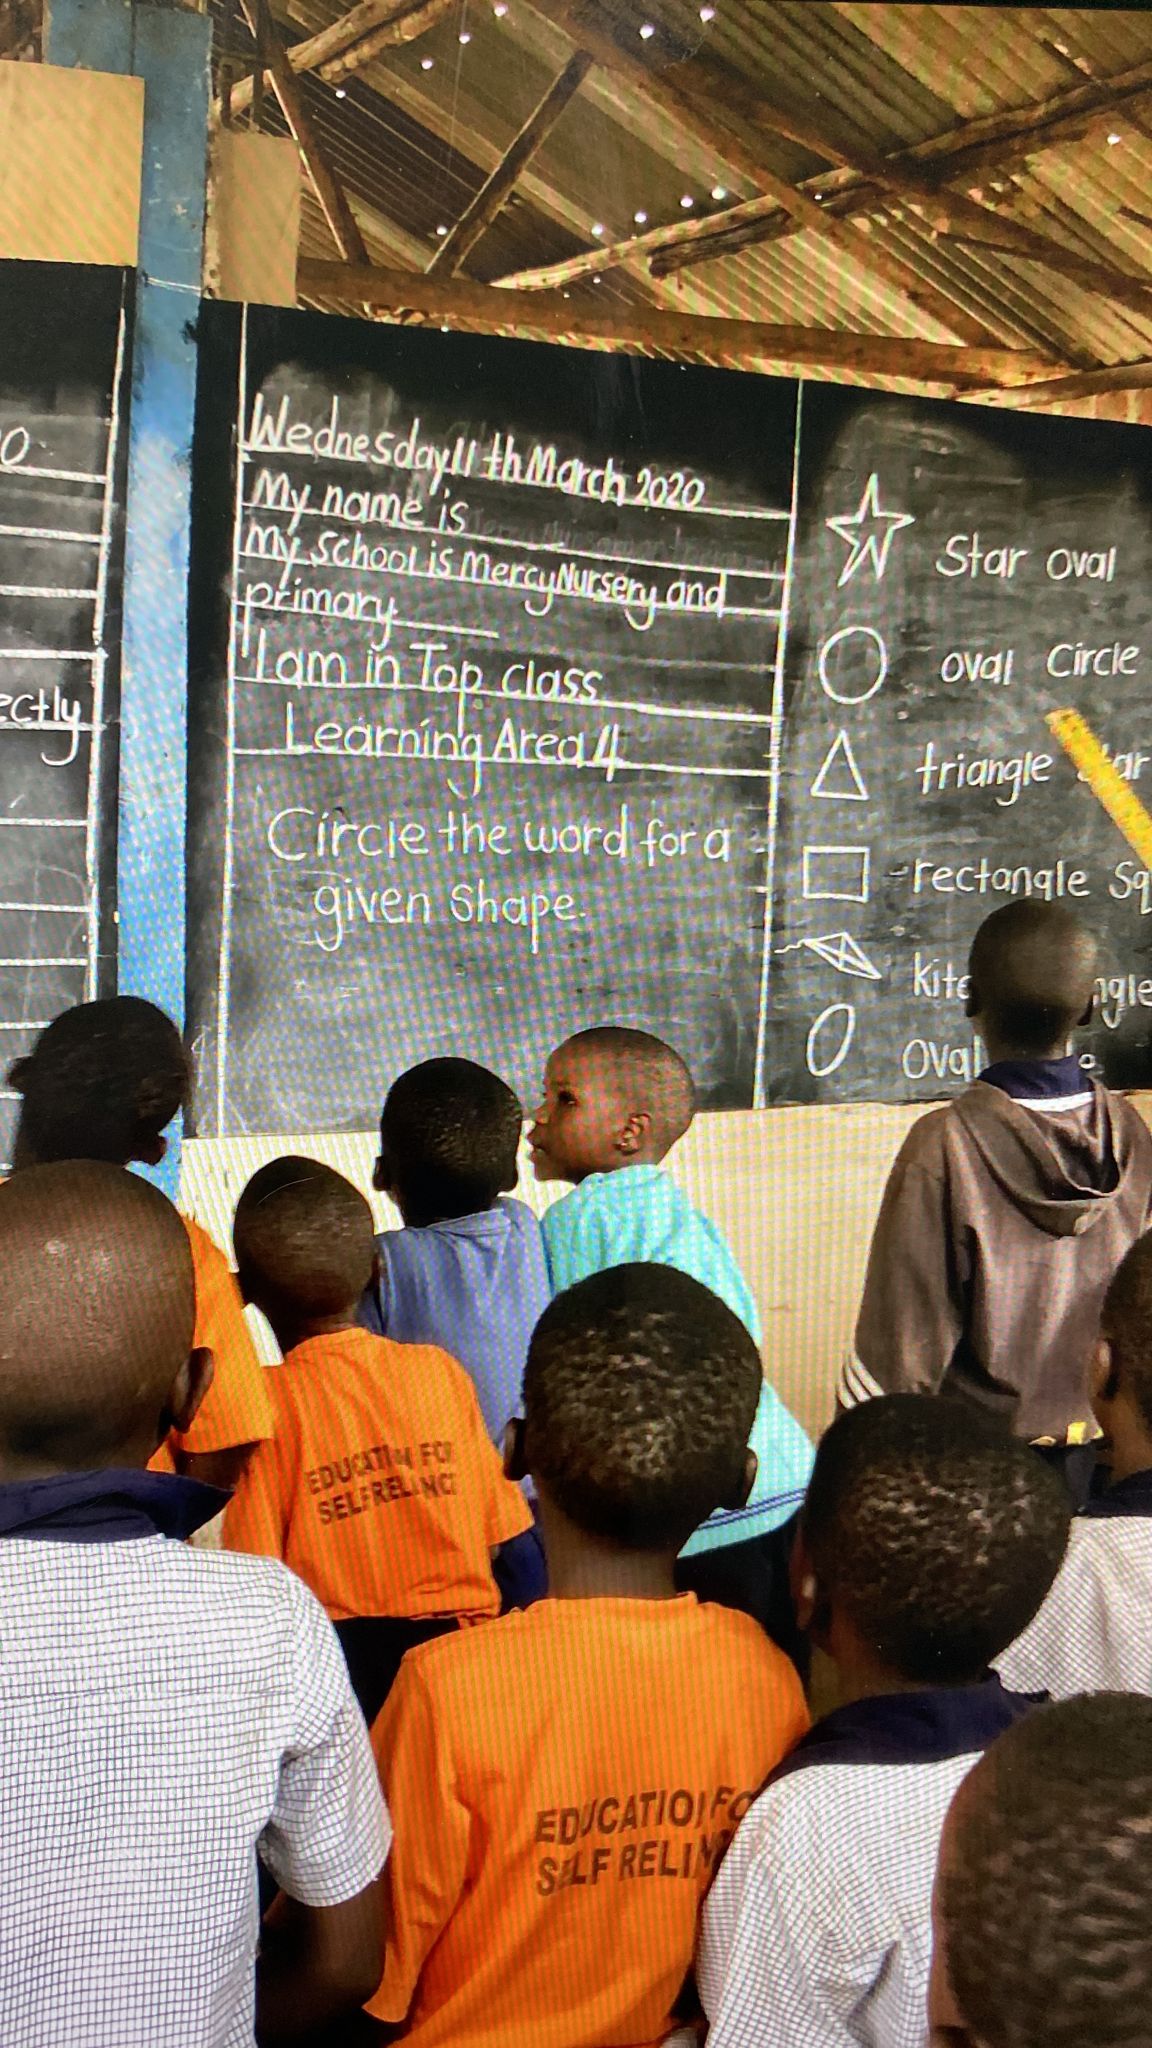 ectly
Wednesday 11th March 2020
My name is
My school is Mercy Nursery and
primary
I am in Top class
Learning Area 4
Circle the word for a
given Shape.
Star oval
oval Circle
triangle
rectangle Sq
kite
oval
EDUCATION FOR
SELF RELI
EDUCATION FO
SELF RELI